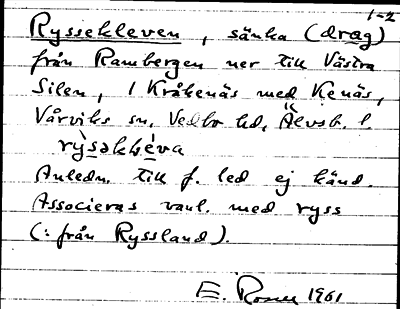 1-2
Ryssekleven, sänka (drag)
från Rambergen ner till Västra
Silen, i Kråkenäs med Kenäs,
Vårviks sn, Vedbo hd, Älvsb. l.
rỳsəkḷéva
Anledn. till f. led ej känd.
Associeras vanl. med ryss
(: från Ryssland).
E. Rosen 1961